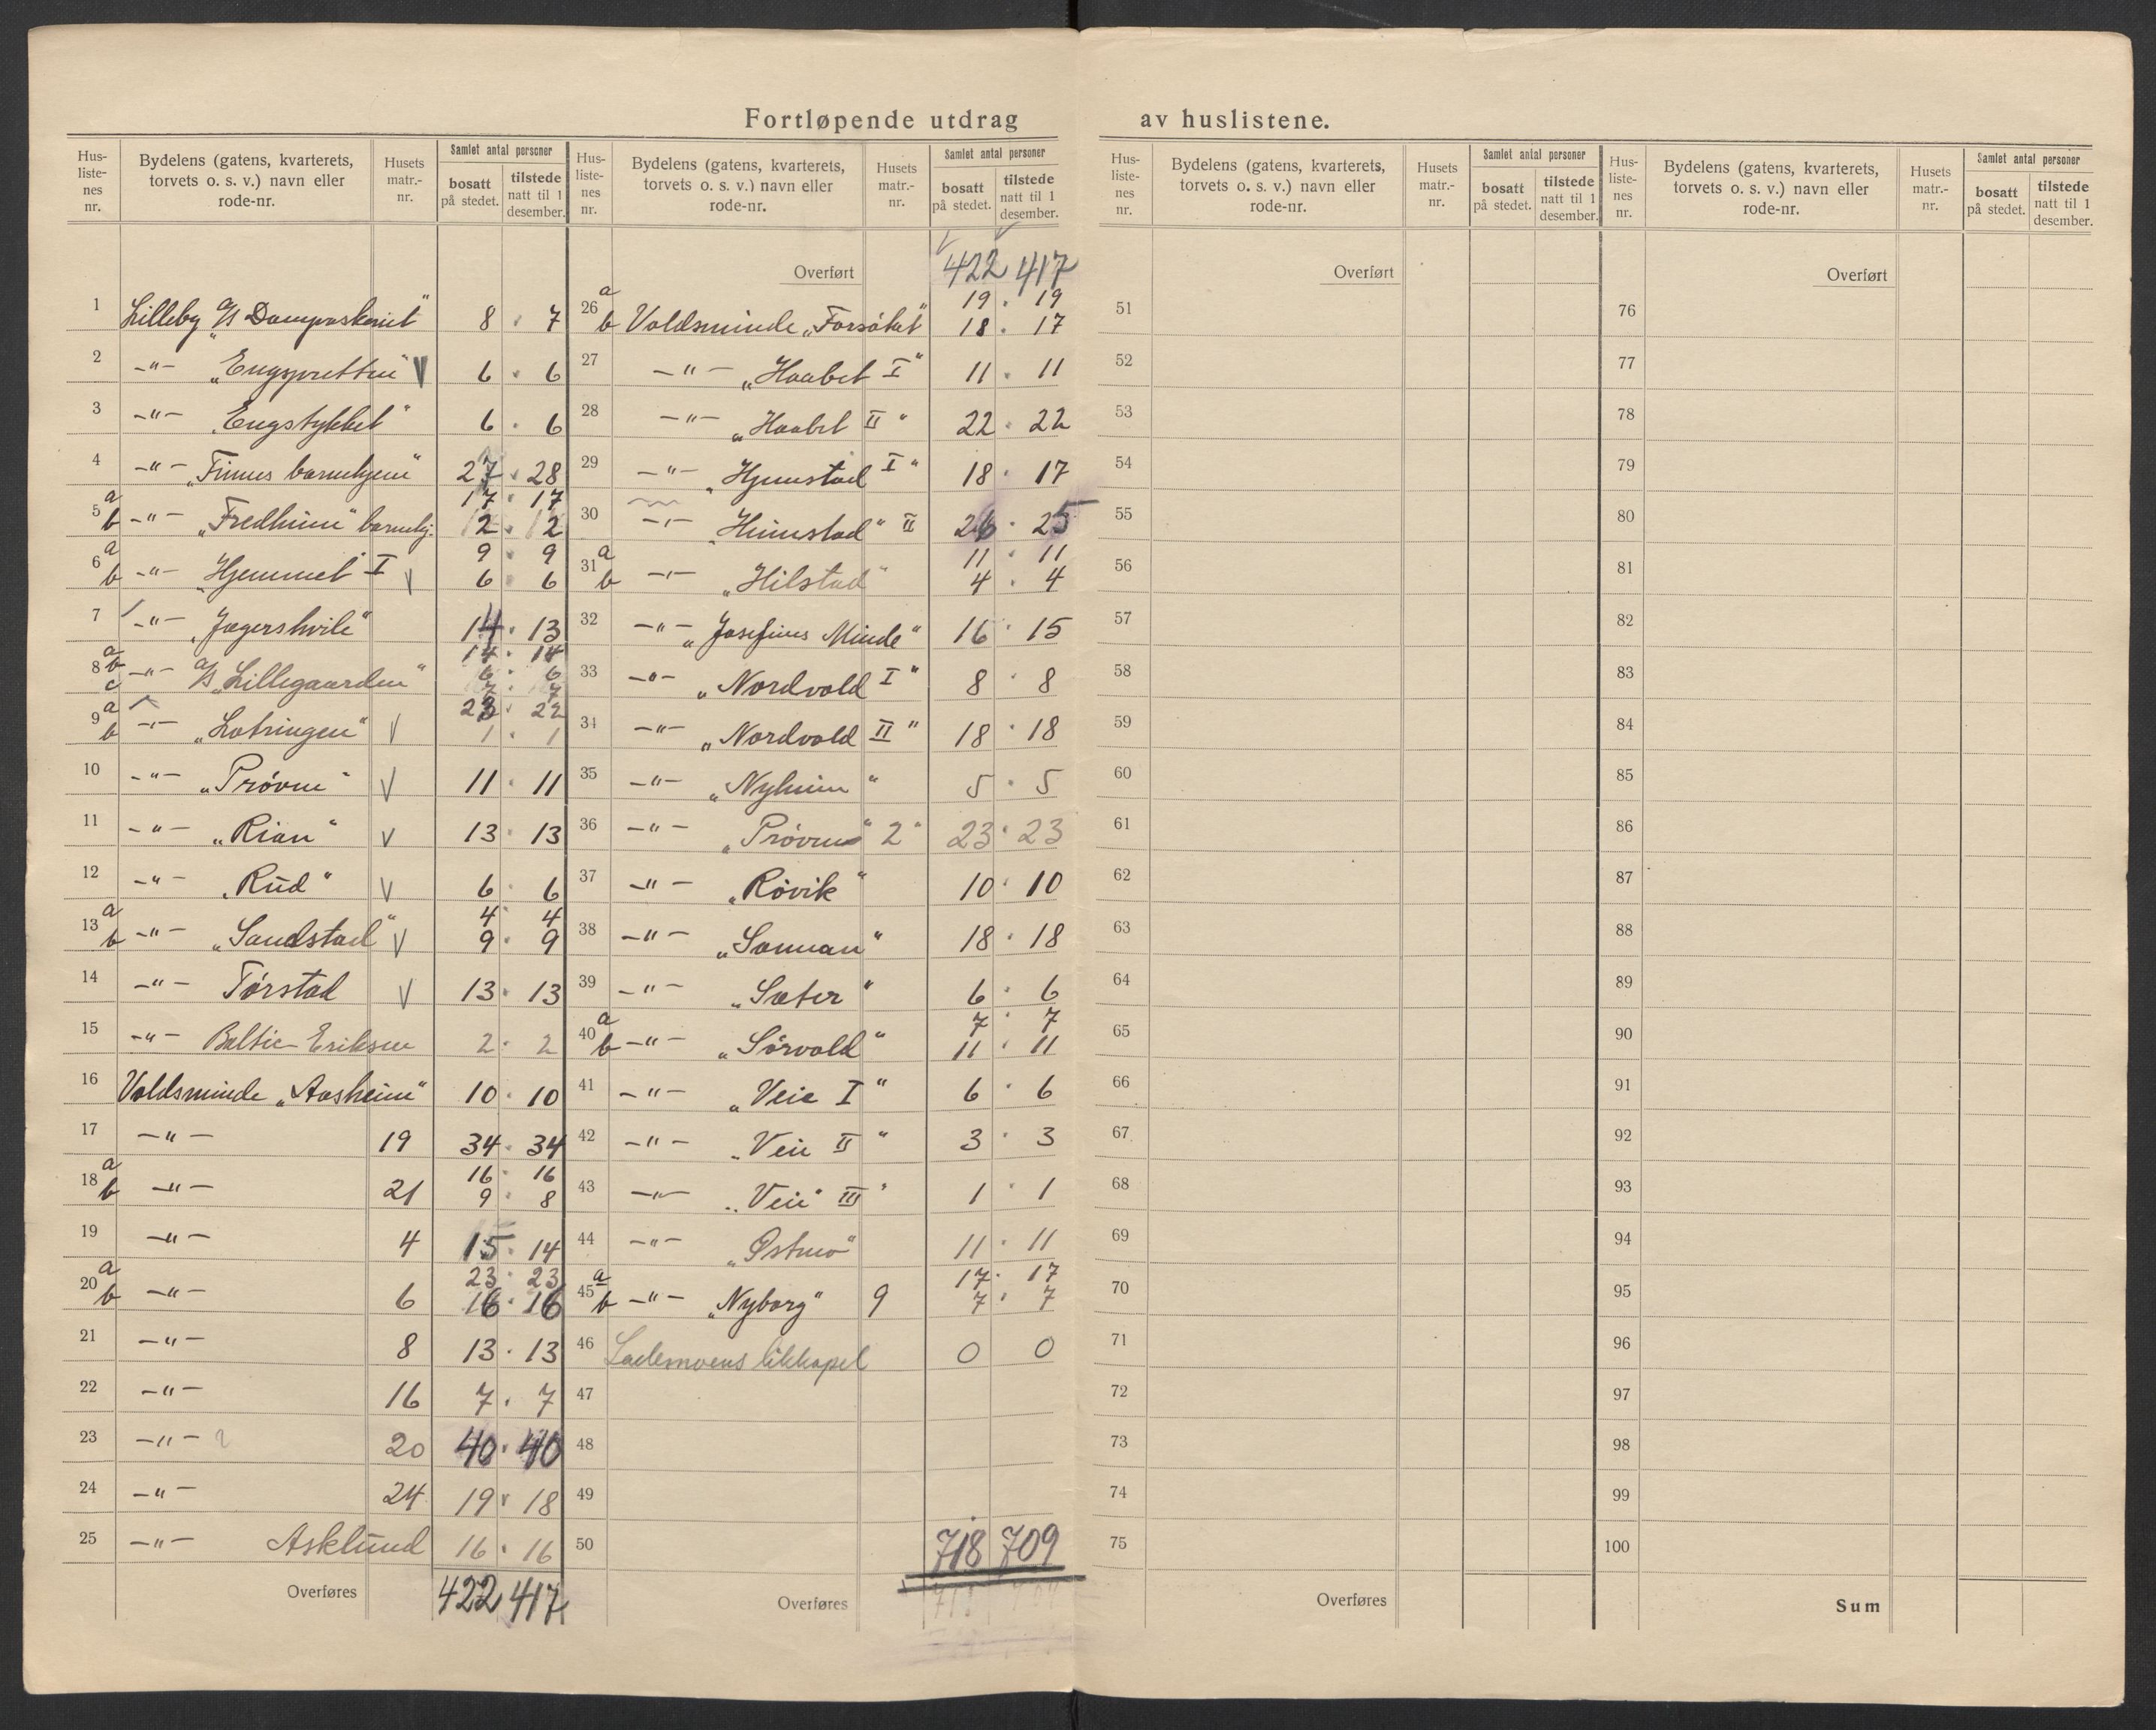 Fortløpende utdrag av huslistene.
Hus-liste-nes nr. Bydelens (gatens, kvarterets, torvets o. s. v.) navn eller rode-nr. Husets matr.-nr. Samlet antal personer bosatt på stedet. tilstede natt til 1 desember.
1 Lilleby A/S Dampvaskeriet" 8 7
2 -"- "Engspretten" V 6 6
3 -"- "Engstykket" 6 6
4 -"- "Finnes barnehjem" 27 28
5 a 17 17
b -"- "Fredheim" barnehj. 2 2
6 a 9 9
b -"- "Hjemmet" I V 6 6
7 -"- "Jægershvile" 14 13
8 a 14 14
b -"- A/S "Lillegaarden" 6 6
c 7 7
9 a 23 22
b -"- "Lotringen" V 1 1
10 -"- "Prøven" V 11 11
11 -"- "Rian" V 13 13
12 -"- "Rud" V 6 6
13 a 4 4
b -"- "Sandstad" V 9 9
14 -"- Tørstad V 13 13
15 -"- Baltic-Eriksen 2 2
16 Voldsminde "Aasheim" 10 10
17 -"- 19 34 34
18 a 16 16
b -"- 21 9 8
19 -"- 4 15 14
20 a 23 23
b -"- 6 16 16
21 -"- 8 13 13
22 -"- 16 7 7
23 -"- 20 40 40
24 -"- 24 19 18
25 -"- Asklund 16 16
Overføres 422 417
Hus-liste-nes nr. Bydelens (gatens, kvarterets, torvets o. s. v.) navn eller rode-nr. Husets matr.-nr. Samlet antal personer bosatt på stedet. tilstede natt til 1 desember.
Overført 422 417
26 a 19 19
b Voldsminde "Forsøket" 18 17
27 -"- "Haabet I" 11 11
28 -"- "Haabet II" 22 22
29 -"- "Hjemstad I" 18 17
30 -"- "Heimstad" II 26 25
31 a 11 11
b -"- "Hilstad" 4 4
32 -"- "Josefines Minde" 16 15
33 -"- "Nordvold I" 8 8
34 -"- "Nordvold II" 18 18
35 -"- "Nyheim" 5 5
36 -"- "Prøven" 2" 23 23
37 -"- "Røvik" 10 10
38 -"- "Sannan" 18 18
39 -"- "Sæter" 6 6
40 a 7 7
b -"- "Sørvold" 11 11
41 -"- "Veie I" 6 6
42 -"- "Veie II" 3 3
43 -"- "Veie" III" 1 1
44 -"- "Østmo" 11 11
45 a 17 17
b -"- "Nyborg" 9 7 7
46 Lademoens likkapel 0 0
47
48
49
50 718 709
Overføres
Hus-liste-nes nr. Bydelens (gatens, kvarterets, torvets o. s. v.) navn eller rode-nr. Husets matr.-nr. Samlet antal personer bosatt på stedet. tilstede natt til 1 desember.
Overført
51
52
53
54
55
56
57
58
59
60
61
62
63
64
65
66
67
68
69
70
71
72
73
74
75
Overføres
Hus-liste-nes nr. Bydelens (gatens, kvarterets, torvets o. s. v.) navn eller rode-nr. Husets matr.-nr. Samlet antal personer bosatt på stedet. tilstede natt til 1 desember.
Overført
76
77
78
79
80
81
82
83
84
85
86
87
88
89
90
91
92
93
94
95
96
97
98
99
100
Sum